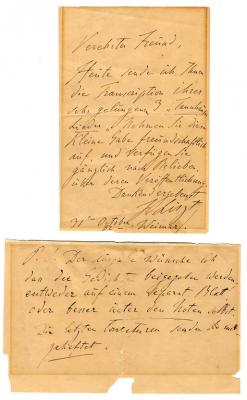 Verehrter Freund,
Heute sende ich Ihnen
die Transcription ihrer
sehr gelungenen 3
Lieder. Nehmen Sie diese
kleine Gabe freundschaftlich
auf und verfügen Sie
gänglich nach Belieben
über deren Veröffentlichung
Dankend ergebenst
F Liszt
31ten October Weimar.
der Ausgabe wünsche ich
dass die Gedichte beigegeben werden,
entweder auf einem separat Blatt
oder besser unter den Noten selbst.
Die letzten Correcturen senden Sie mir
gehäftet.